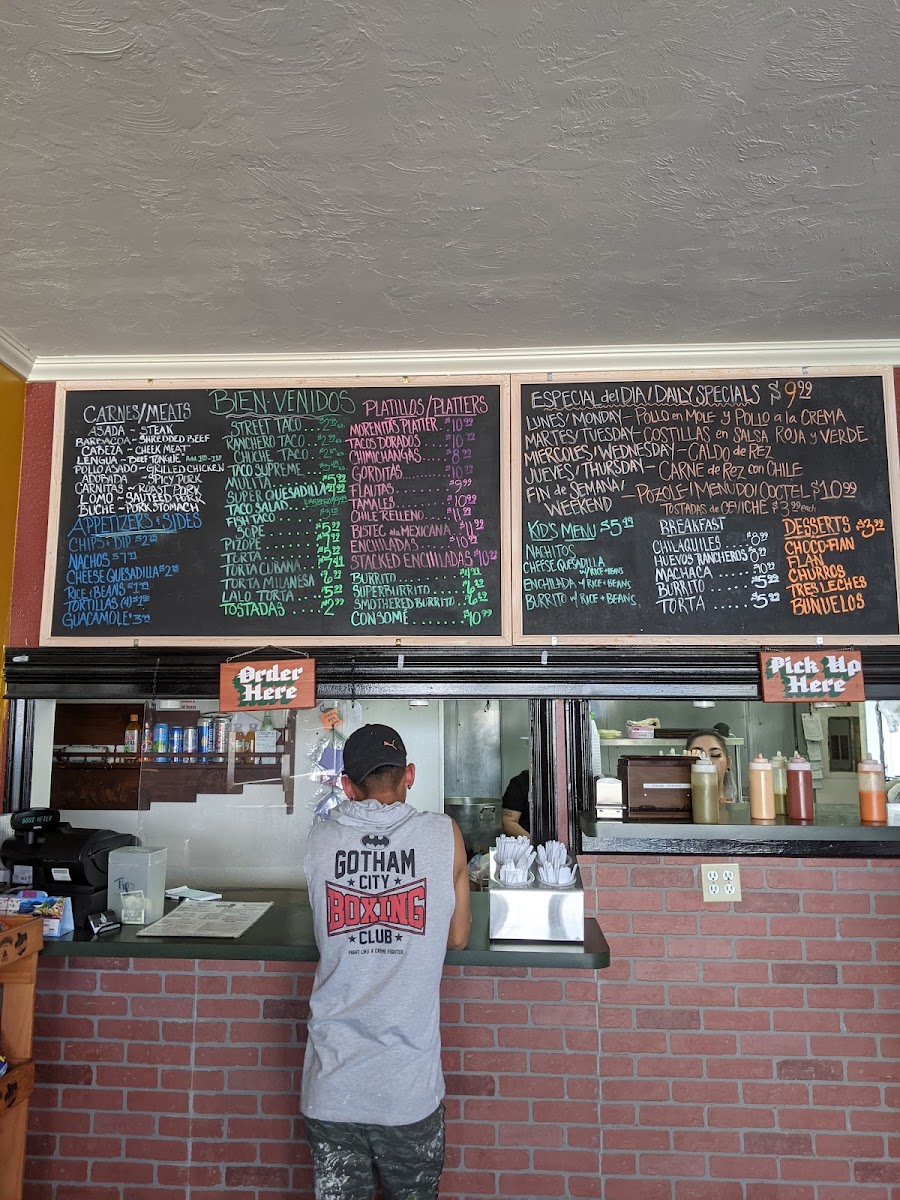 CARNES/MEATS
ASADA - STEAK
BARBACOA - SHREDDED BEEF
CABEZA - CHEEK MEAT
LENGUA - BEEF TONGUE
POLLO ASADO - GRILLED CHICKEN
ADOBADA - SPICY PORK
CARNITAS - ROAST PORK
LOMO - SAUTEED PORK
BUCHE - PORK STOMACH
APPETIZERS + SIDES
CHIPS + DIP $2.25
NACHOS $7.99
CHEESE QUESADILLA $2
RICE + BEANS
TORTILLAS (4)
GUACAMOLE $3
BIEN-VENIDOS
STREET TACO
RANCHERO TACO
CHUCHE TACO
TACO SUPREME
MULITA $5.99
SUPER QUESADILLA
TACO SALAD
FISH TACO
SOPE $5.99
PIZOPE
TORTA $5.99
TORTA CUBANA $7.49
TORTA MILANESA $6.99
LALO TORTA $5.99
TOSTADAS $2.99
PLATILLOS/PLATTERS
MORENITAS PLATTER $10.99
TACOS DORADOS $10
CHIMICHANGAS $8.99
GORDITAS $10
FLAUTAS $9.99
TAMALES $10.99
CHILE RELLENO $11.99
BISTEC a la MEXICANA $11.99
ENCHILADAS $10.99
STACKED ENCHILADAS $10
BURRITO
SUPERBURRITO
SMOTHERED BURRITO
CONSOME $10.99
ESPECIAL del DIA/DAILY SPECIALS $9.99
LUNES/MONDAY - POLLO en MOLE y POLLO a la CREMA
MARTES/TUESDAY - COSTILLAS en SALSA ROJA y VERDE
MIERCOLES/WEDNESDAY - CALDO de REZ
JUEVES/THURSDAY - CARNE de REZ con CHILE
FIN de SEMANA/
WEEKEND - POZOLE/MENUDO/COCTEL $10.99
TOSTADAS de CEVICHE $3.99 each
KID'S MENU $5.49
NACHITOS
CHEESE QUESADILLA
w/RICE + BEANS
ENCHILADA w/ RICE + BEANS
BURRITO w/ RICE + BEANS
BREAKFAST
CHILAQUILES $8.99
HUEVOS RANCHEROS $8.99
MACHACA
BURRITO $5.99
TORTA $5.99
DESSERTS $3.99
CHOCO-FLAN
FLAN
CHURROS
TRES LECHES
BUÑUELOS
Order
Here
Pick Up
Here
Tips
GOTHAM
CITY
BOXING
CLUB
FIGHT LIKE A CRIME FIGHTER